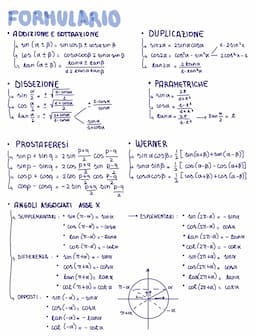 FORMULARIO
• ADDIZIONE E SOTTRAZIONE
sin (α ± β) = sinαcosβ ± cosαsinβ
cos (α ± β) = cosαcosβ ∓ sinαsinβ
tan (α ± β) = tanα ± tanβ / 1 ∓ tanαtanβ
• DUPLICAZIONE
sin2α = 2sinαcosα
cos2α = cos²α - sin²α
1 - 2sin²α
2cos²α - 1
tan2α = 2tanα / 1 - tan²α
• BISSEZIONE
sin α/2 = ±
cos α/2 = ±
tan α/2 = ±
sinα
1+cosα
• PARAMETRICHE
sinα = 2t / 1+t²
cosα = 1-t² / 1+t²
• PROSTAFERESI
sinp + sinq = 2 sin p+q/2 cos p-q/2
sinp - sinq = 2 cos p+q/2 sin p-q/2
cosp + cosq = 2 cos p+q/2 cos p-q/2
cosp - cosq = -2 sin p+q/2 sin p-q/2
• WERNER
sinαcosβ = 1/2 [sin(α+β)+sin(α-β)]
sinαsinβ = 1/2 [cos(α-β)-cos(α+β)]
cosαcosβ = 1/2 [cos(α+β)+cos(α-β)]
• ANGOLI ASSOCIATI ASSE X
SUPPLEMENTARI:
• sin (π-α) = sinα
• cos (π-α) = -cosα
• tan (π-α) = -tanα
• cot (π-α) = -cotα
DIFFERENZA
• sin (π+α) = -sinα
• cos (π+α) = -cosα
• tan (π+α) = tanα
• cot (π+α) = cotα
OPPOSTI:
• sin (-α) = -sinα
• cos (-α) = cosα
• tan (-α) = -tanα
• cot (-α) = -cotα
• sin (2π-α) = -sinα
• cos (2π-α) = cosα
• tan (2π-α) = -tanα
• cot (2π-α) = -cotα
• sin (2π+α) = sinα
• cos (2π+α) = cosα
• tan (2π+α) = tanα
• cot (2π+α) = cotα
π-α
α